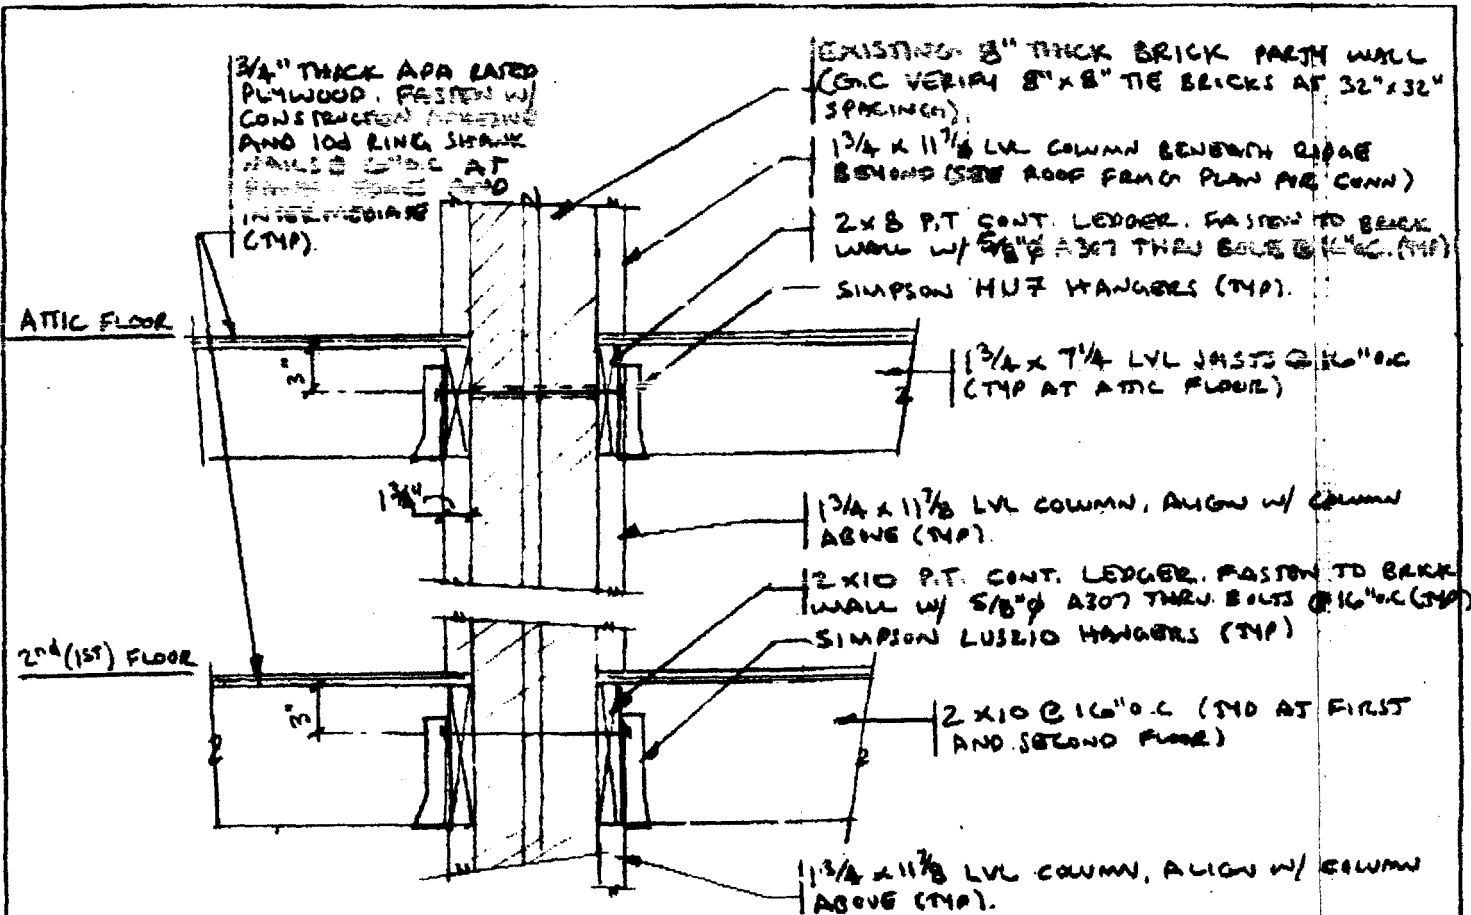 3/4" THICK APA RATED
PLYWOOD. FASTEN W/
CONSTRUCTION
AND 10d RING SHANK
NAILS @ O.C AT
AND
INTERMEDIATE
(TYP).
EXISTING 8" THICK BRICK PARTY WALL
(G.C VERIFY 8"x8" TIE BRICKS AT 32"x32"
SPACING).
1 3/4 x 11 7/8 LVL COLUMN BENEATH RIDGE
BEYOND (SEE ROOF FRMG PLAN FOR CONN)
2x8 P.T CONT. LEDGER. FASTEN TO BRICK
WALL W/ 5/8"φ A307 THRU BOLT @ 16"O.C. (TYP)
SIMPSON HU7 HANGERS (TYP).
ATTIC FLOOR
3"
1 3/4 x 7 1/4 LVL JOISTS @ 16"O.C
(TYP AT ATTIC FLOOR)
2
1 3/4"
1 3/4 x 11 7/8 LVL COLUMN, ALIGN W/ COLUMN
ABOVE (TYP).
2x10 P.T. CONT. LEDGER. FASTEN TO BRICK
WALL W/ 5/8"φ A307 THRU. BOLTS @ 16"O.C (TYP)
SIMPSON LUS210 HANGERS (TYP)
2nd (1ST) FLOOR
3"
2x10 @ 16"O.C (TYP AT FIRST
AND SECOND FLOOR)
2
2
1 3/4 x 11 7/8 LVL COLUMN, ALIGN W/ COLUMN
ABOVE (TYP).